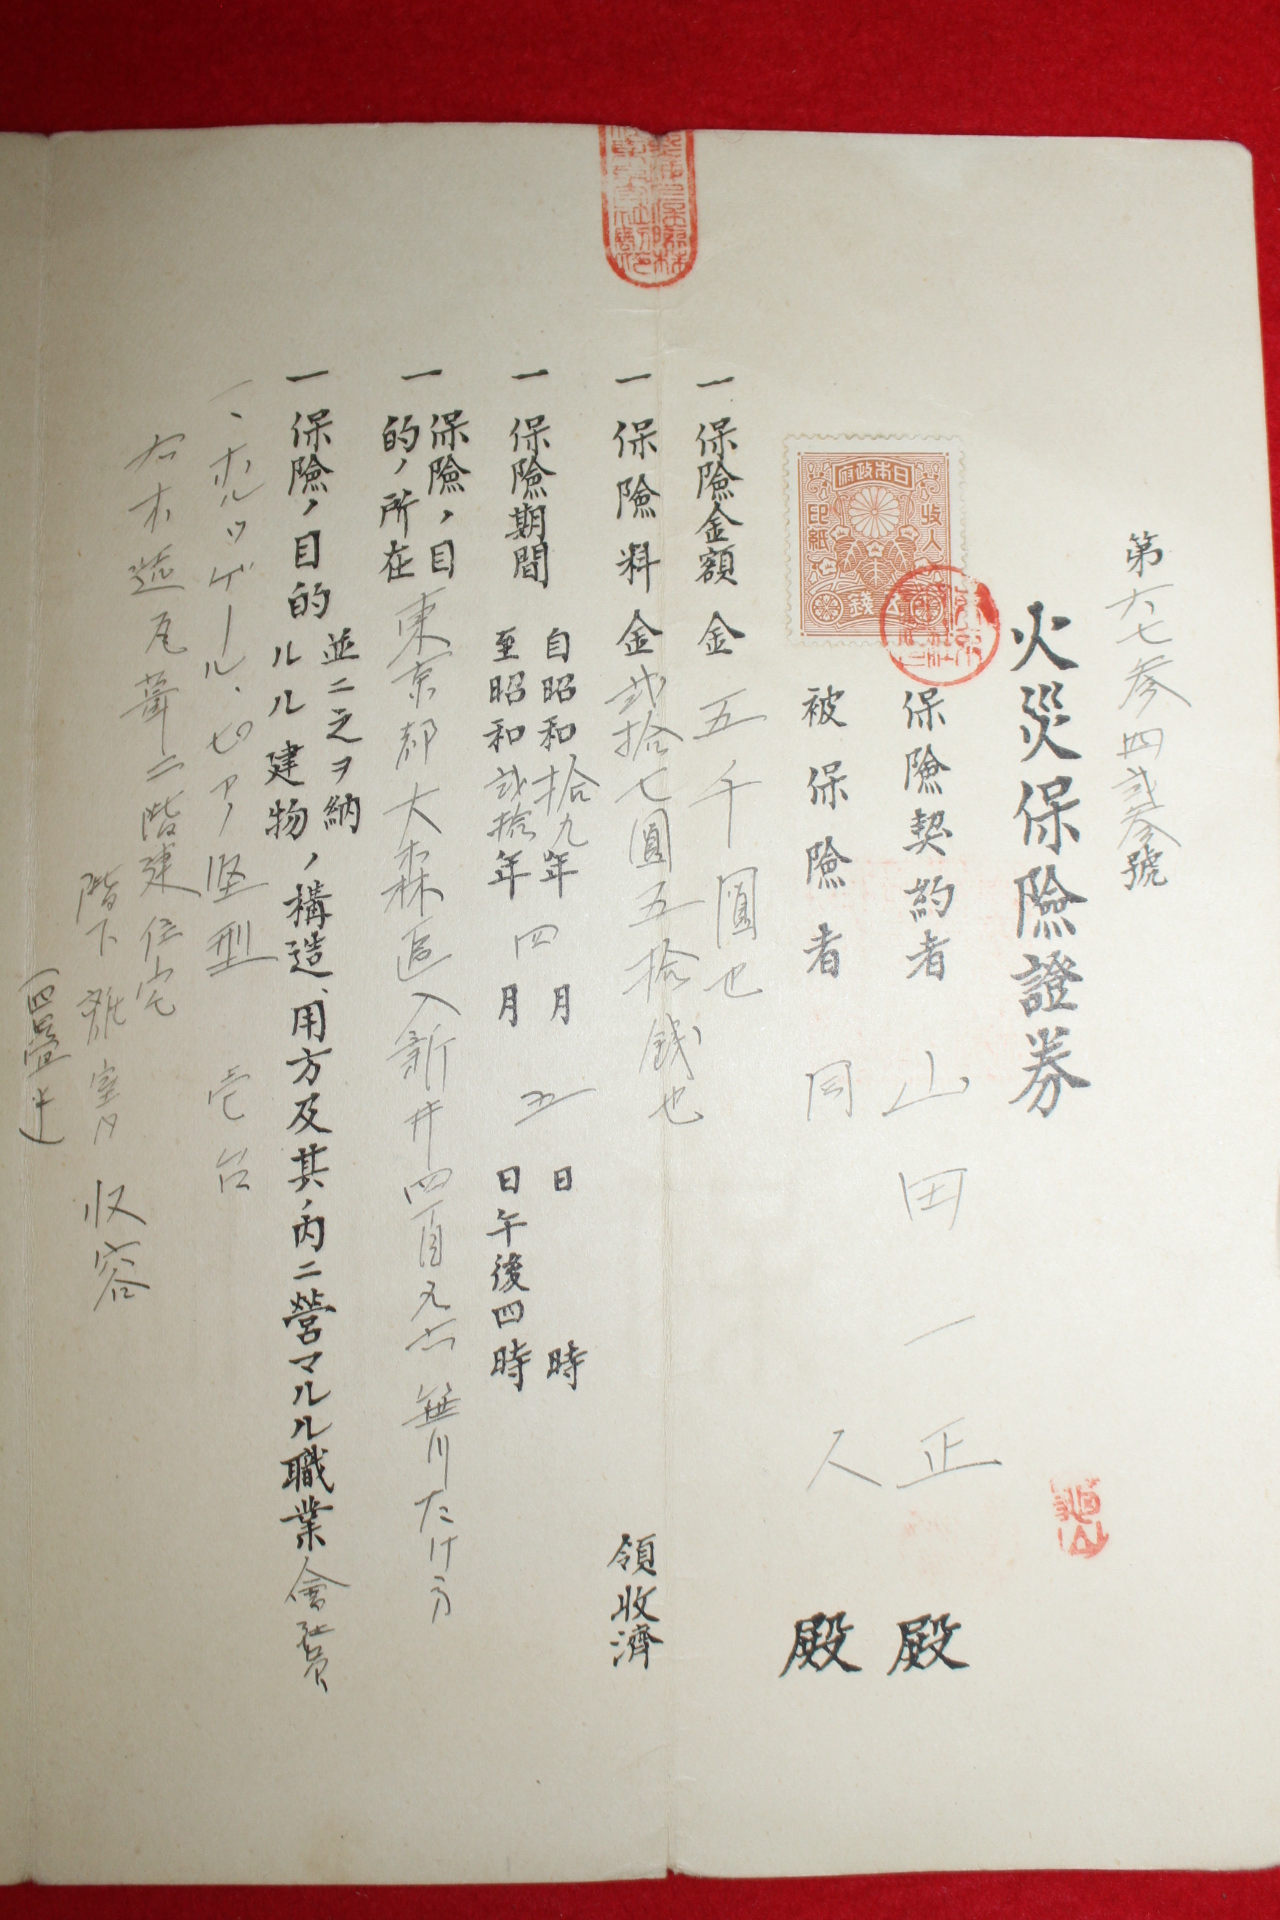 第六七参四弐参號
火災保險證券
保險契約者 山田一正 殿
被保險者 同人 殿
日本政府
收入
印紙
五錢
一 保險金額 金五千圓也
一 保險料 金弐拾七圓五拾錢也 領收濟
一 保險期間
自昭和拾九年四月五日 時
至昭和弐拾年四月五日午後四時
一 保險ノ目的ノ所在
東京都大森區入新井四ノ百九六 無川たけ方
一 保險ノ目的並ニ之ヲ納ルル建物ノ構造、用方及其ノ内ニ營マルル職業會社員
一、ホルツゲール、ピアノ竪型 壱台
右木造瓦葺二階建住宅
階下離室内 収容
(四畳半)